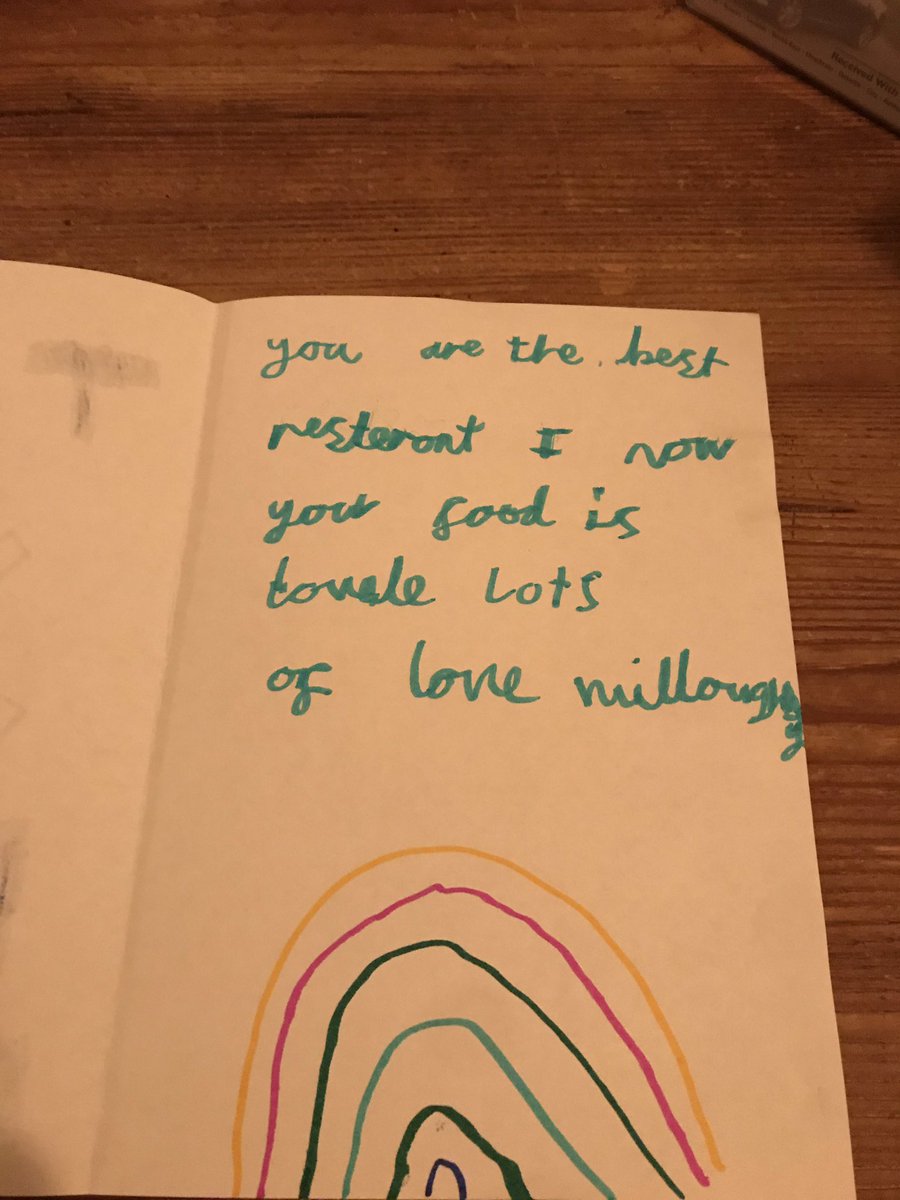 Received With
you are the . best
resteront I now
your food is
Lots
of love